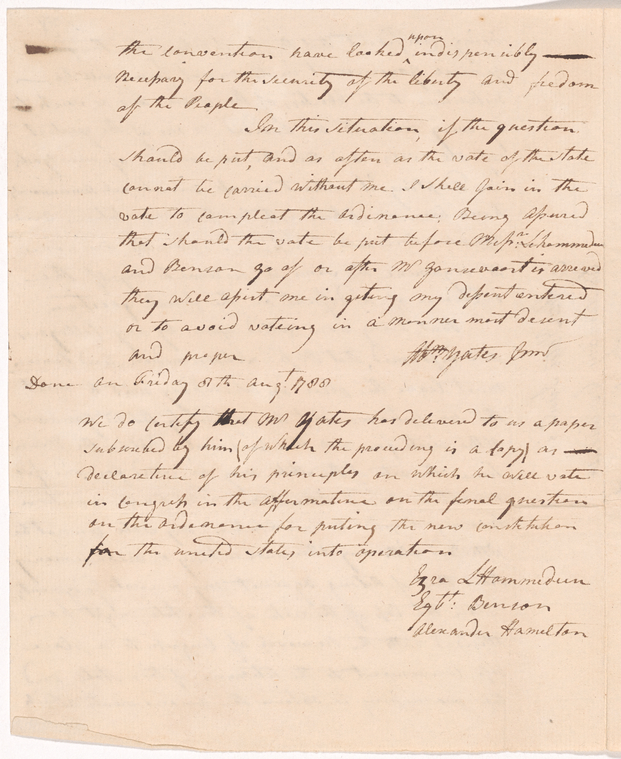 the convention have looked upon indispensibly
Necessary for the security of the liberty and freedom
of the People
In this situation, if the question
should be put, and as often as the vote of the State
cannot be carried without me. I shall Join in the
vote to compleat the ordinance; Being assured
that should the vote be put before Messrs. Lhommedieu
and Benson go of or after Mr Gansevoort is arrived
they will assist me in geting my dissent entered
or to avoid voteing in a manner most decent
and proper
Abm. Yates Junr
Done on Friday 8th Augt 1788
We do certify that Mr Yates has delivered to us a paper
subscribed by him (of which the preceeding is a Copy) as
declarative of his principles on which he will vote
in congress in the affirmative on the final question
on the ordinance for puting the new constitution
for the united States into operation
Ezra LHommedieu
Egbt: Benson
Alexander Hamilton